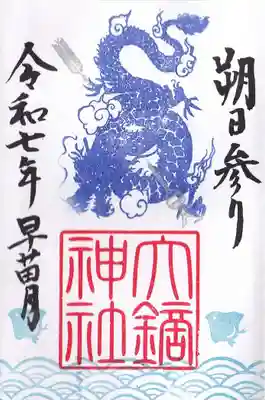 朔日参り
六鏑神社
令和七年 早苗月